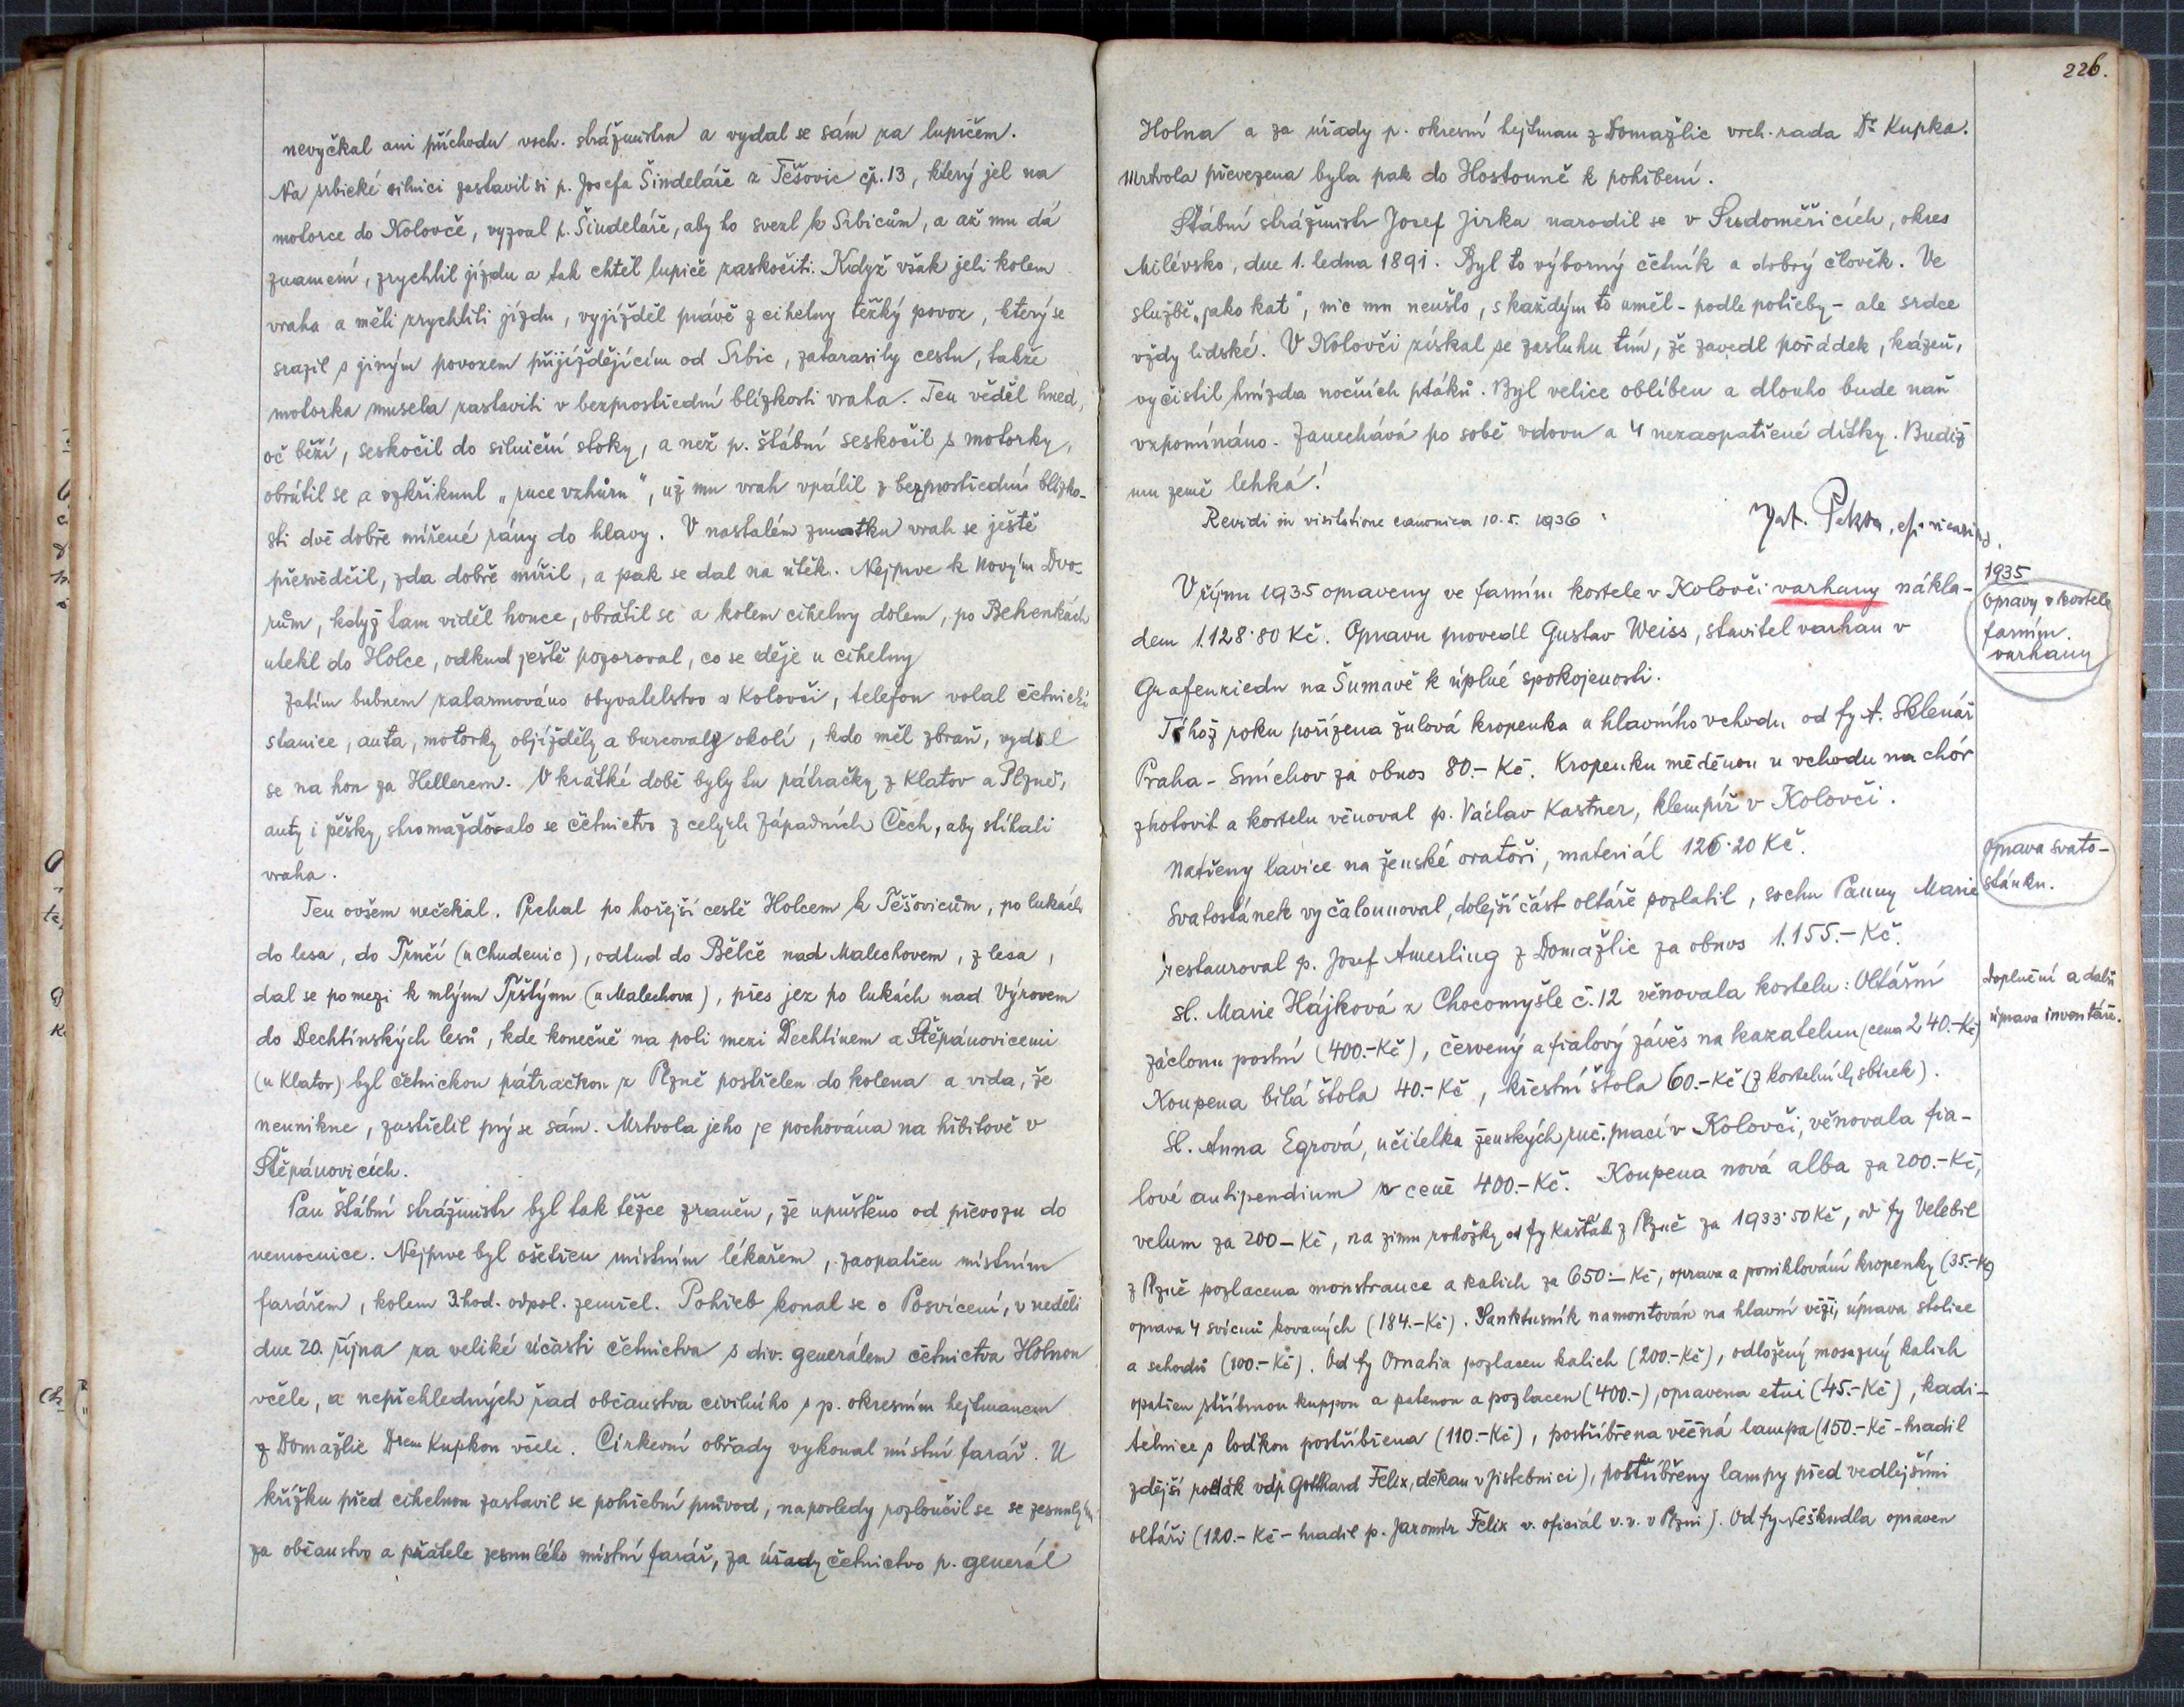 nevyčkal ani příchodu vrch. strážmistra a vydal se sám za lupičem.
Na srbické silnici zastavil si p. Josefa Šindeláře z Těšovic čp. 13, který jel na
motorce do Kolovče, vyzval p. Šindeláře, aby ho svezl k Srbicům, a až mu dá
znamení, zrychlil jízdu a tak chtěl lupiče zaskočiti. Když však jeli kolem
vraha a měli zrychliti jízdu, vyjížděl právě z cihelny těžký povoz, který se
srazil s jiným povozem přijíždějícím od Srbic, zatarasily cestu, takže
motorka musela zastaviti v bezprostřední blízkosti vraha. Ten věděl hned,
oč běží, seskočil do silniční stoky, a než p. štábní seskočil s motorky,
obrátil se a vzkřiknul „ruce vzhůru", už mu vrah vpálil z bezprostřední blízko-
sti dvě dobře mířené rány do hlavy. V nastalém zmatku vrah se ještě
přesvědčil, zda dobře mířil, a pak se dal na útěk. Nejprve k Novým Dvo-
rům, když tam viděl honce, obrátil se a kolem cihelny dolem, po Behenkách
utekl do Holce, odkud ještě pozoroval, co se děje u cihelny
Zatím bubnem zalarmováno obyvatelstvo v Kolovči, telefon volal četnické
stanice, auta, motorky objížděly a burcovaly okolí, kdo měl zbraň, vydal
se na hon za Hellerem. V krátké době byly tu pátračky z Klatov a Plzně,
auty i pěšky, shromažďovalo se četnictvo z celých západních Čech, aby stíhali
vraha.
Ten ovšem nečekal. Prchal po hořejší cestě Holcem k Těšovicům, po lukách
do lesa, do Trnčí (u Chudenic), odtud do Bělče nad Malechovem, z lesa,
dal se po mezi k mlýnu Trštýnu (u Malechova), přes jez po lukách nad Výrovem
do Dechtínských lesů, kde konečně na poli mezi Dechtínem a Štěpánovicemi
(u Klatov) byl četnickou pátračkou z Plzně postřelen do kolena a vida, že
neunikne, zastřelil prý se sám. Mrtvola jeho je pochována na hřbitově v
Štěpánovicích.
Pan štábní strážmistr byl tak těžce zraněn, že upuštěno od převozu do
nemocnice. Nejprve byl ošetřen místním lékařem, zaopatřen místním
farářem, kolem 3. hod. odpol. zemřel. Pohřeb konal se o Posvícení, v neděli
dne 20. října za veliké účasti četnictva s div. generálem četnictva Holnou
včele, a nepřehledných řad občanstva civilního s p. okresním hejtmanem
z Domažlic Drem Kupkou včele. Církevní obřady vykonal místní farář. U
křížku před cihelnou zastavil se pohřební průvod, naposledy rozloučil se se zesnulým
za občanstvo a přátele zesnulého místní farář, za úřady četnictvo p. generál
226.
Holna a za úřady p. okresní hejtman z Domažlic vrch. rada Dr Kupka.
Mrtvola převezena byla pak do Hostouně k pohřbení.
Štábní strážmistr Josef Jirka narodil se v Sudoměřicích, okres
Milévsko, dne 1. ledna 1891. Byl to výborný četník a dobrý člověk. Ve
službě „jako kat", nic mu neušlo, s každým to uměl - podle potřeby - ale srdce
vždy lidské. V Kolovči získal se zasluhu tím, že zavedl pořádek, kázeň,
vyčistil hnízda nočních ptáků. Byl velice oblíben a dlouho bude naň
vzpomínáno. Zanechává po sobě vdovu a 4 nezaopatřené dítky. Budiž
mu země lehká!
Revidi in visitatione canonica 10. 5. 1936
Pekta
V říjnu 1935 opraveny ve farním kostele v Kolovči varhany nákla-
dem 1.128·80 Kč. Opravu provedl Gustav Weiss, stavitel varhan v
Grafenriedu na Šumavě k úplné spokojenosti.
Téhož roku pořízena žulová kropenka u hlavního vchodu od fy A. Sklenář
Praha - Smíchov za obnos 80.- Kč. Kropenku měděnou u vchodu na chór
zhotovil a kostelu věnoval p. Václav Kastner, klempíř v Kolovči.
Natřeny lavice na ženské oratoři, materiál 126·20 Kč.
Svatostánek vyčalounoval, dolejší část oltáře pozlatil, sochu Panny Marie
restauroval p. Josef Amerling z Domažlic za obnos 1.155.- Kč.
Sl. Marie Hájková z Chocomyšle č. 12 věnovala kostelu: Oltářní
záclonu postní (400.-Kč), červený a fialový závěs na kazatelnu (cena 240.-Kč)
Koupena bílá štola 40.-Kč, křestní štola 60.-Kč (z kostelních sbírek).
Sl. Anna Egrová, učitelka ženských ruč. prací v Kolovči, věnovala fia-
lové antipendium v ceně 400.-Kč. Koupena nová alba za 200.-Kč,
velum za 200-Kč, na zimu rohožky od fy Kašták z Plzně za 1933·50 Kč, od fy Velebil
z Plzně pozlacena monstrance a kalich za 650.- Kč, oprava a poniklování kropenky (35.-Kč)
oprava 4 svícnů kovaných (184.-Kč). Sanktusník namontován na hlavní věži, úprava stolice
a schodů (100.-Kč). Od fy Ornatia pozlacen kalich (200.-Kč), odložený mosazný kalich
opatřen stříbrnou kuppou a patenou a pozlacen (400.-), opravena etui (45.-Kč), kadi-
telnice s loďkou postříbřena (110.-Kč), postříbřena věčná lampa (150.-Kč - hradil
zdější rodák vdp. Gotthard Felix, děkan v Jistebnici), postříbřeny lampy před vedlejšími
oltáři (120.- Kč - hradil p. Jaromír Felix v. oficiál v. v. v Plzni). Od fy Neškudla opraven
1935
Opravy v kostele
farním.
varhany
Oprava svato-
stánku.
Doplnění a další
úprava inventáře.